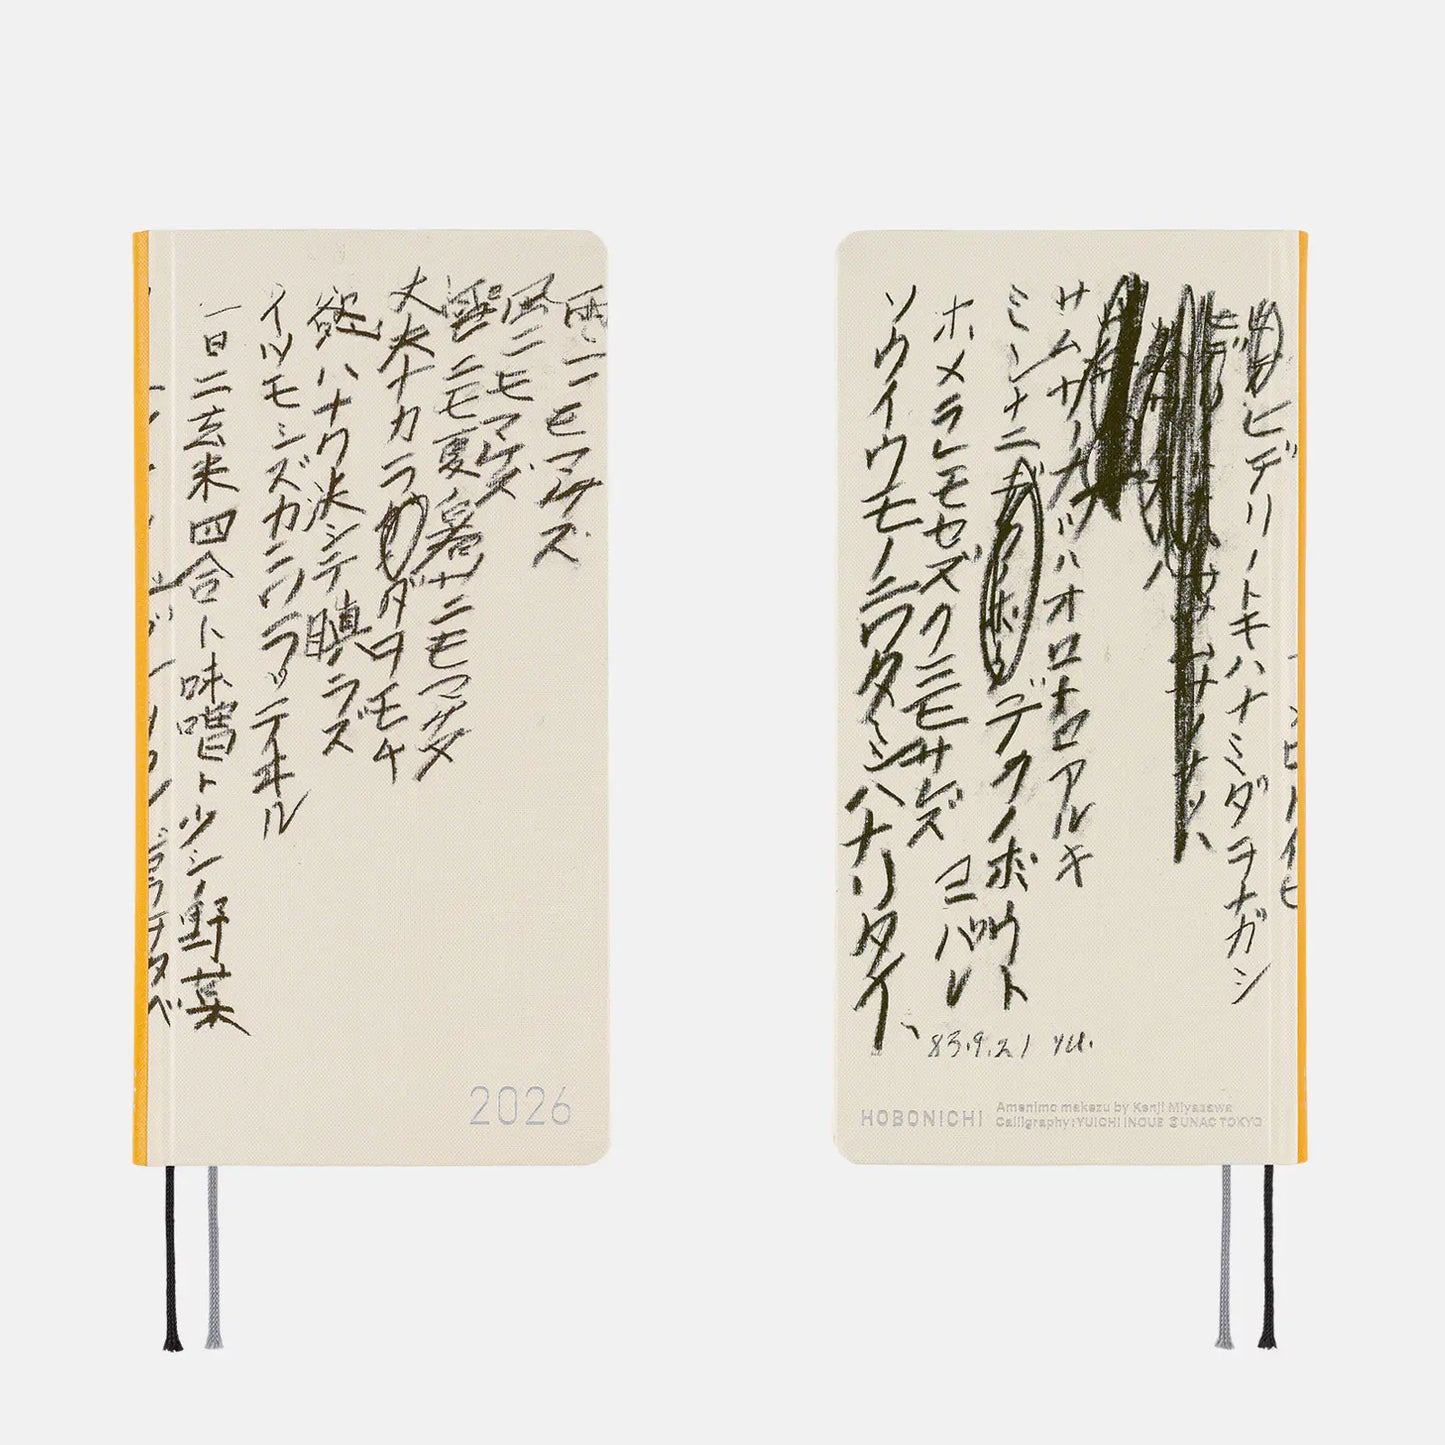 雨ニモマケズ
風ニモマケズ
雪ニモ夏暑サニモマケヌ
丈夫ナカラダヲモチ
慾ハナク決シテ瞋ラズ
イツモシズカニワラッテヰル
一日ニ玄米四合ト味噌ト少シノ野菜
2026
ヒデリノトキハナミダヲナガシ
サムサノナツハオロオロアルキ
ミンナニデクノボウト
ヨバレ
ホメラレモセズクニモサレズ
ソウイウモノニワタシハナリタイ
83.9.21 yu.
HOBONICHI
Amenimo makezu by Kenji Miyazawa
Calligraphy:YUICHI INOUE ©UNAC TOKYO